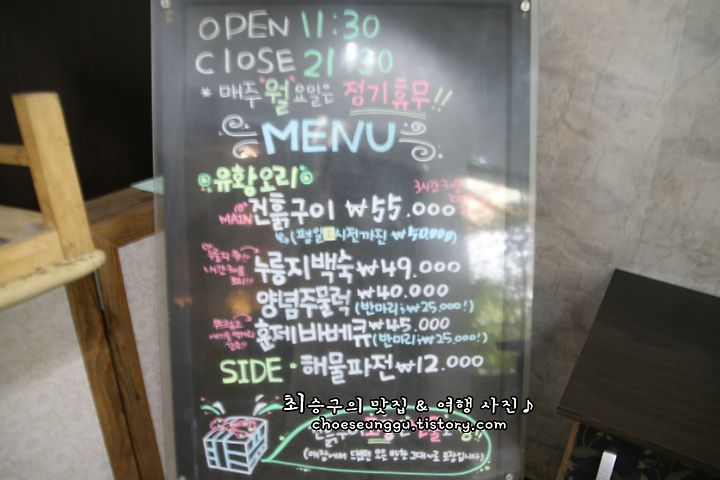 OPEN 11:30
CLOSE 21:30
* 매주 "월"요일은 정기휴무!!
MENU
유황오리
3시간
MAIN 진흙구이 ₩55.000
(평일 시전까진 ₩50.000)
누룽지백숙 ₩49.000
양념주물럭 ₩40.000 (반마리;₩25.000!)
훈제바베큐 ₩45.000 (반마리;₩25.000!)
SIDE · 해물파전 ₩12.000
최승구의 맛집 & 여행 사진♪
choeseunggu.tistory.com
(매장에서 드실때 모든 반찬 그대로 포장입니다)